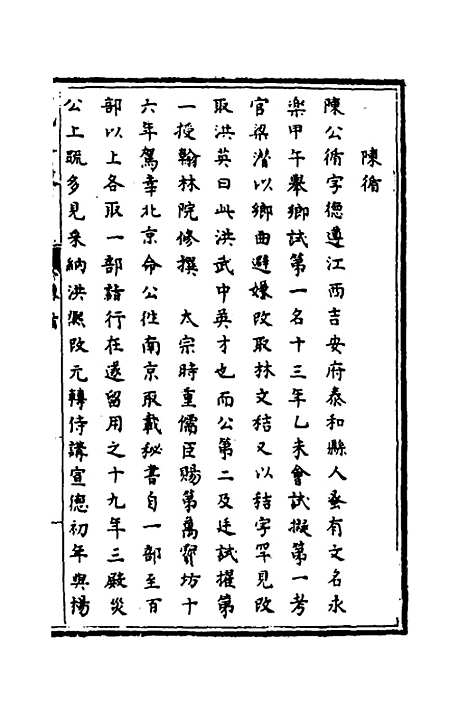 陳循
陳公循字德遵江西吉安府泰和縣人蚤有文名永
樂甲午舉鄉試第一名十三年乙未會試擬第一考
官梁潛以鄉曲避嫌改取林文秸又以秸字罕見改
取洪英曰此洪武中英才也而公第二及廷試擢第
一授翰林院修撰　太宗時重儒臣賜第萬寶坊十
六年駕幸北京命公往南京取載秘書自一部至百
部以上各取一部詣行在遂留用之十九年三殿災
公上疏多見采納洪熙改元轉侍講宣德初年與楊